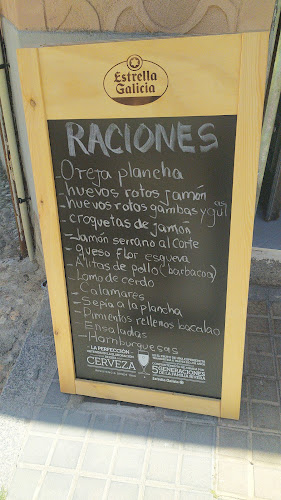 Estrella
Galicia
RACIONES
Oreja plancha
- huevos rotos jamón
- huevos rotos gambas y gul as
- croquetas de jamón
- Jamón serrano al corte
- queso flor esgueva
- Alitas de pollo (barbacoa)
- Lomo de cerdo
- Calamares
- Sepia a la plancha
- Pimientos rellenos bacalao
- Ensaladas
- Hamburguesas
LA PERFECCIÓN
CERVEZA
5 GENERACIONES
DE LA FAMILIA RIVERA
Estrella Galicia